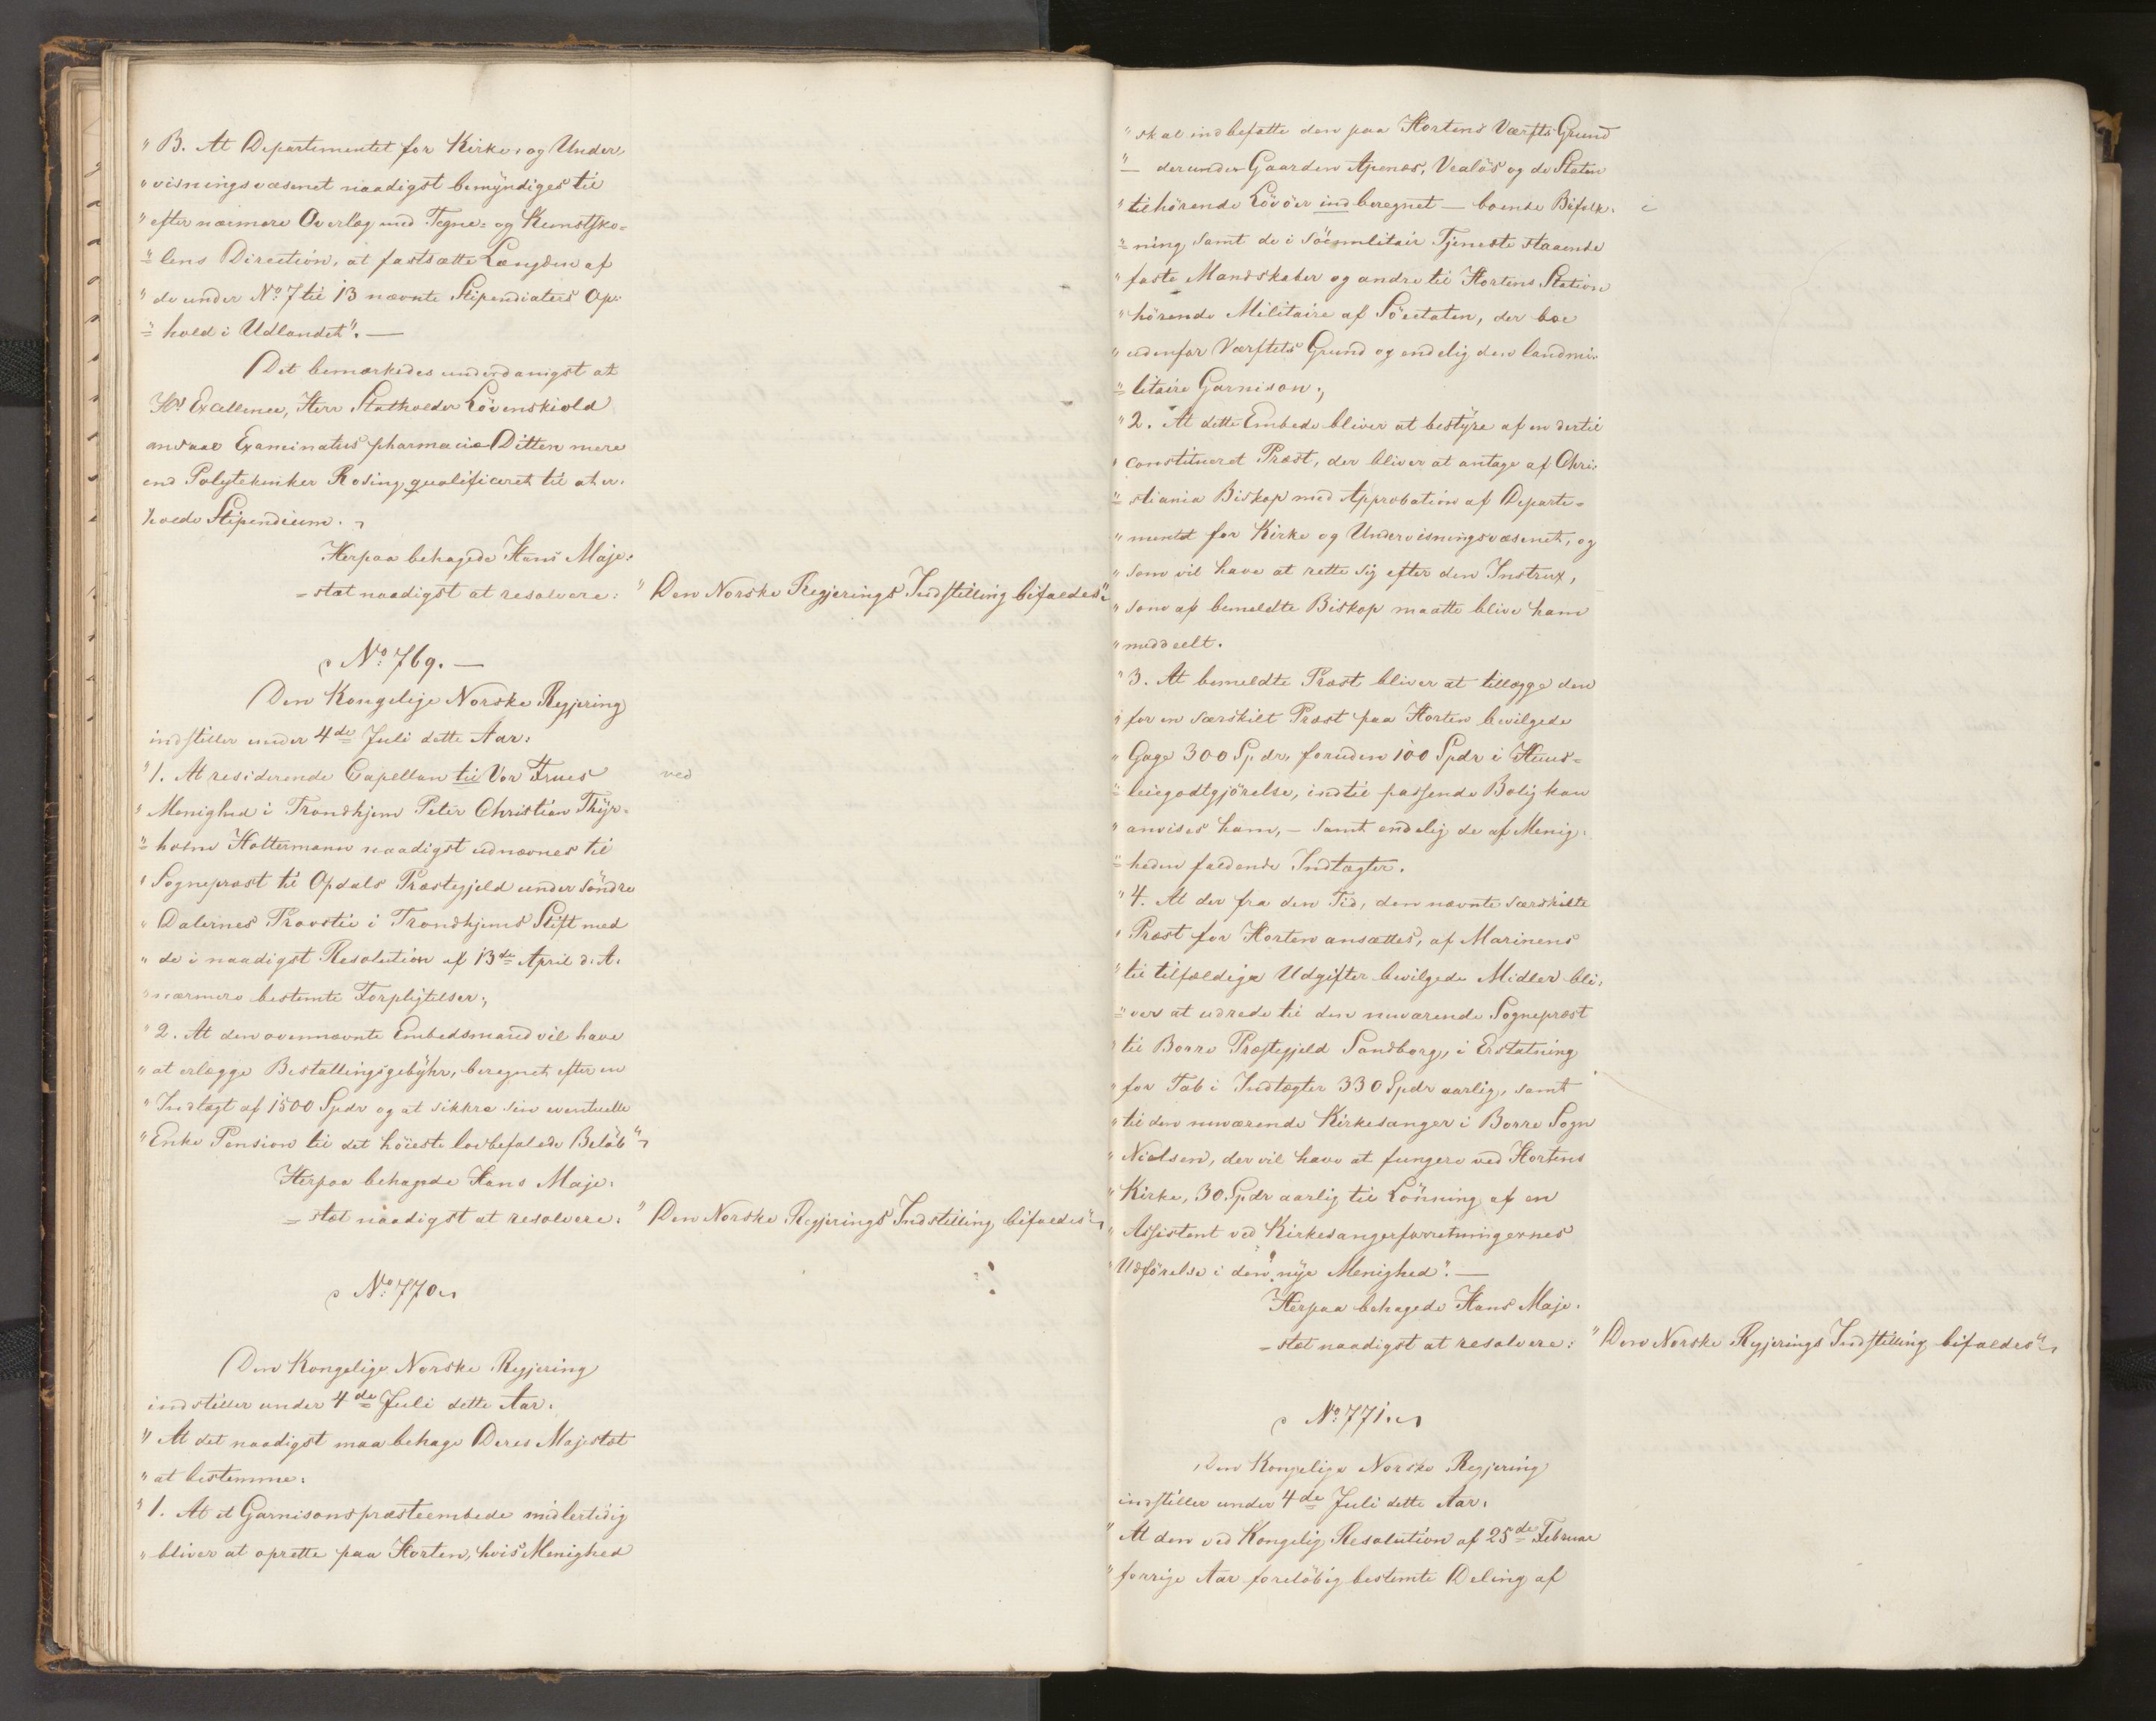 "B. At Departementet for Kirke- og Under-
"visningsvæsenet naadigst bemÿndiges til
"efter nærmere Overlæg med Tegne- og Kunstsko-
"lens Direction, at fastsætte Længden af
"de under No 7 til 13 nævnte Stipendiaters Op-
"hold i Udlandet". —
Det bemærkedes underdanigst at
Hs Excellence, Herr Statholder Lövenskiold
ansaae Examinatus pharmacie Ditten mere
end Polytekniker Rosing qualificeret til at er-
holde Stipendium.
Herpaa behagede Hans Maje-
-stæt naadigst at resolvere: "Den Norske Regjerings Indstilling bifaldes"
No 769. —
Den Kongelige Norske Regjering
indstiller under 4de Juli dette Aar:
"1. At residerende Capellan til Vor Frues ved
"Menighed i Trondhjem Peter Christian Thÿr-
"holm Holtermann naadigst udnævnes til
"Sognepræst til Opdals Præstegjeld under Söndre
"Dalernes Provstie i Trondhjems Stift med
"de i naadigst Resolution af 13de April d. A.
"nærmere bestemte Forpligtelser;
"2. At den ovennævnte Embedsmand vil have
"at erlægge Bestallingsgebÿhr, beregnet efter en
"Indtægt af 1500 Spdr og at sikkre sin eventuelle
"Enke Pension til det höieste lovbefalede Belöb"
Herpaa behagede Hans Maje-
-stæt naadigst at resolvere: "Den Norske Regjerings Indstilling bifaldes"
No 770
Den Kongelige Norske Regjering
indstiller under 4de Juli dette Aar:
"At det naadigst maa behage Deres Majestæt
"at bestemme:
"1. At et Garnisonspræsteembede midlertidig
"bliver at oprette paa Horten, hvis Menighed
"skal indbefatte den paa Hortens Værfts Grund
"— derunder Gaarden Apenæs, Vealös og de Staten
"tilhörende Lövöer indberegnet — boende Befolk- i
"ning samt de i Söemilitair Tjeneste staaende
"faste Mandskaber og andre til Hortens Station
"hörende Militaire af Söeetaten, der boe
"udenfor Værftets Grund og endelig den landmi-
"litaire Garnison;
"2. At dette Embede bliver at bestÿre af en dertil
"constitueret Præst, der bliver at antage af Chri-
"stiania Biskop med Approbation af Departe-
"mentet for Kirke og Undervisningsvæsenet, og
"som vil have at rette sig efter den Instrux,
"som af bemeldte Biskop maatte blive ham
"meddeelt.
"3. At bemeldte Præst bliver at tillægge den
"for en særskilt Præst paa Horten bevilgede
"Gage 300 Spdr, foruden 100 Spdr i Huus-
"leiegodtgjörelse, indtil passende Bolig kan
"anvises ham, — samt endelig de af Menig-
"heden faldende Indtægter.
"4. At der fra den Tid, den nævnte særskilte
"Præst for Horten ansættes, af Marinens
"til tilfældige Udgifter bevilgede Midler bli-
"ver at udrede til den nuværende Sognepræst
"til Borre Præstegjeld Sandborg, i Erstatning
"for Tab i Indtægter 330 Spdr aarlig, samt
"til den nuværende Kirkesanger i Borre Sogn
"Nielsen, der vil have at fungere ved Hortens
"Kirke, 30 Spdr aarlig til Lönning af en
"Assistent ved Kirkesangerforretningernes
"Udförelse i den nye Menighed". —
Herpaa behagede Hans Maje-
-stæt naadigst at resolvere: "Den Norske Regjerings Indstilling bifaldes"
No 771.
Den Kongelige Norske Regjering
indstiller under 4de Juli dette Aar:
"At den ved Kongelig Resolution af 25de Februar
"forrige Aar forelöbig bestemte Deling af